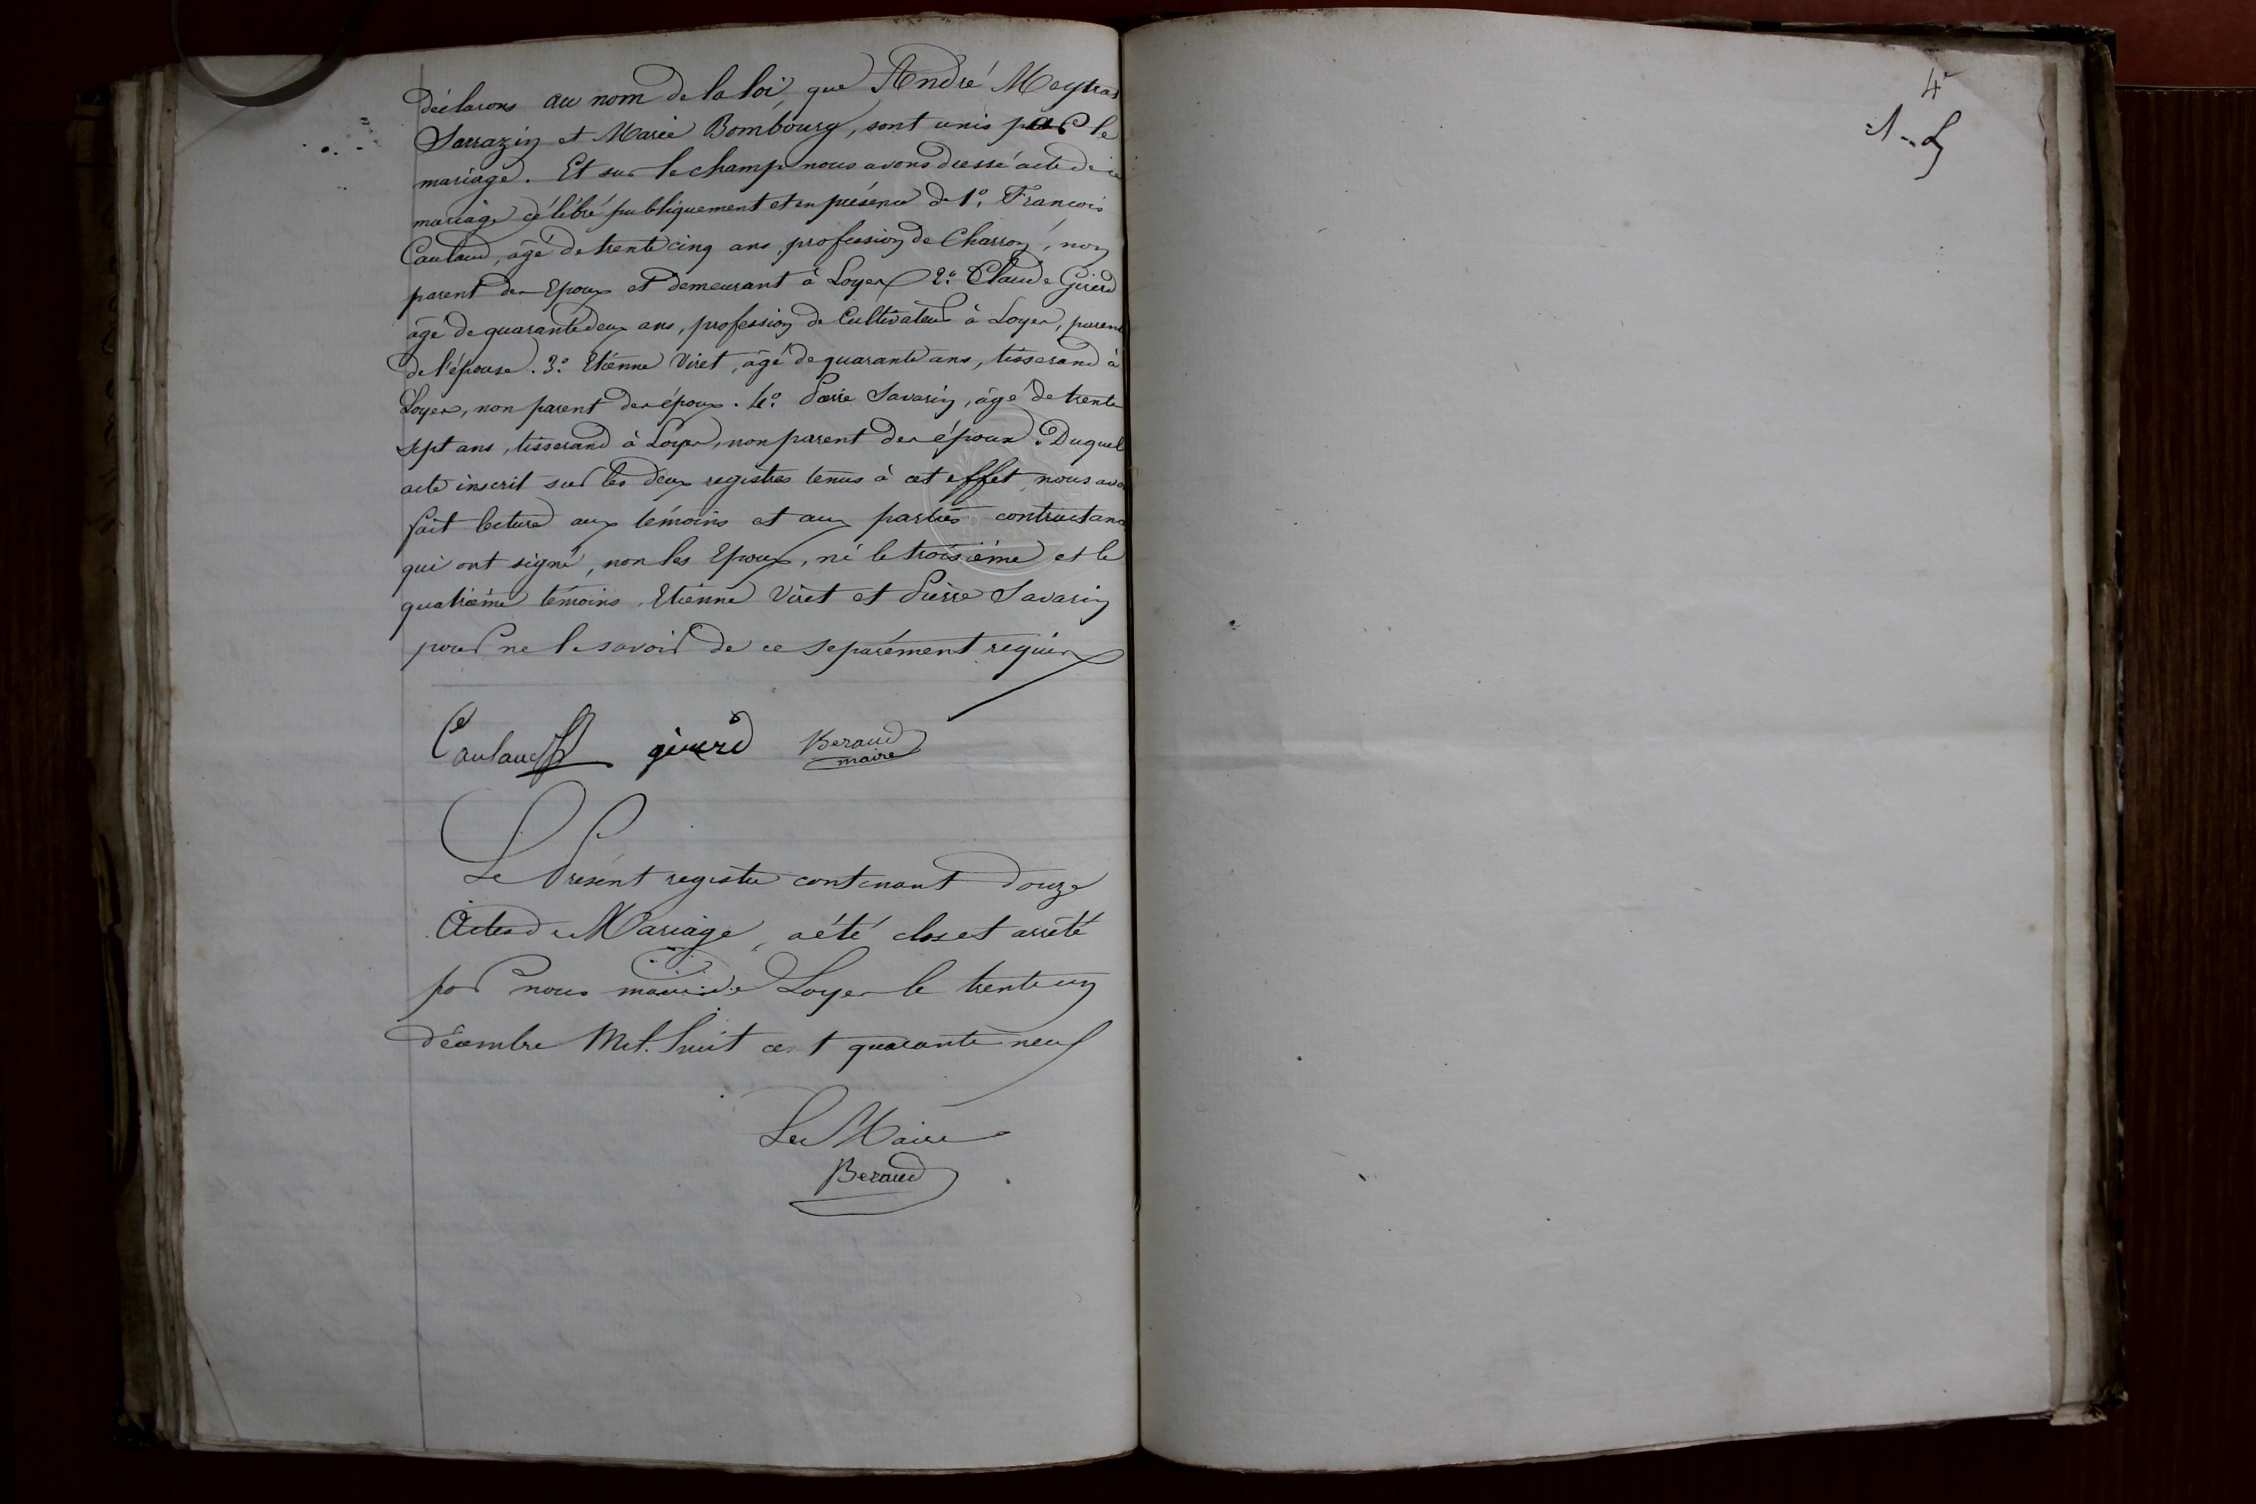 déclarons au nom de la loi, que André Meyras
Sarrazin et Marie Bombourg, sont unis par le
mariage. Et sur le champ nous avons dressé acte de ce
mariage célébré publiquement et en présence de 1.° François
Caulaud, âgé de trente cinq ans, profession de Charron, non
parent des Epoux et demeurant à Loyes 2.° Claude Girerd
âgé de quarante deux ans, profession de Cultivateur à Loyes, parent
de l'épouse. 3.° Etienne Viret, âgé de quarante ans, tisserand à
Loyes, non parent des époux. 4.° Pierre Savarin, âgé de trente
sept ans, tisserand à Loyes, non parent des époux. Duquel
acte inscrit sur les deux registres tenus à cet effet, nous avo
fait lecture aux témoins et aux parties contractan
qui ont signé, non les Epoux, ni le troisième et le
quatrième témoins, Etienne Viret et Pierre Savarin
pour ne le savoir de ce séparément requis
Caulaud girerd Beraud
maire
Le Présent registre contenant douze
Actes de Mariage, a été clos et arrêté
par nous maire de Loyes le trente un
décembre Mil huit cent quarante neuf
Le Maire
Beraud
4e